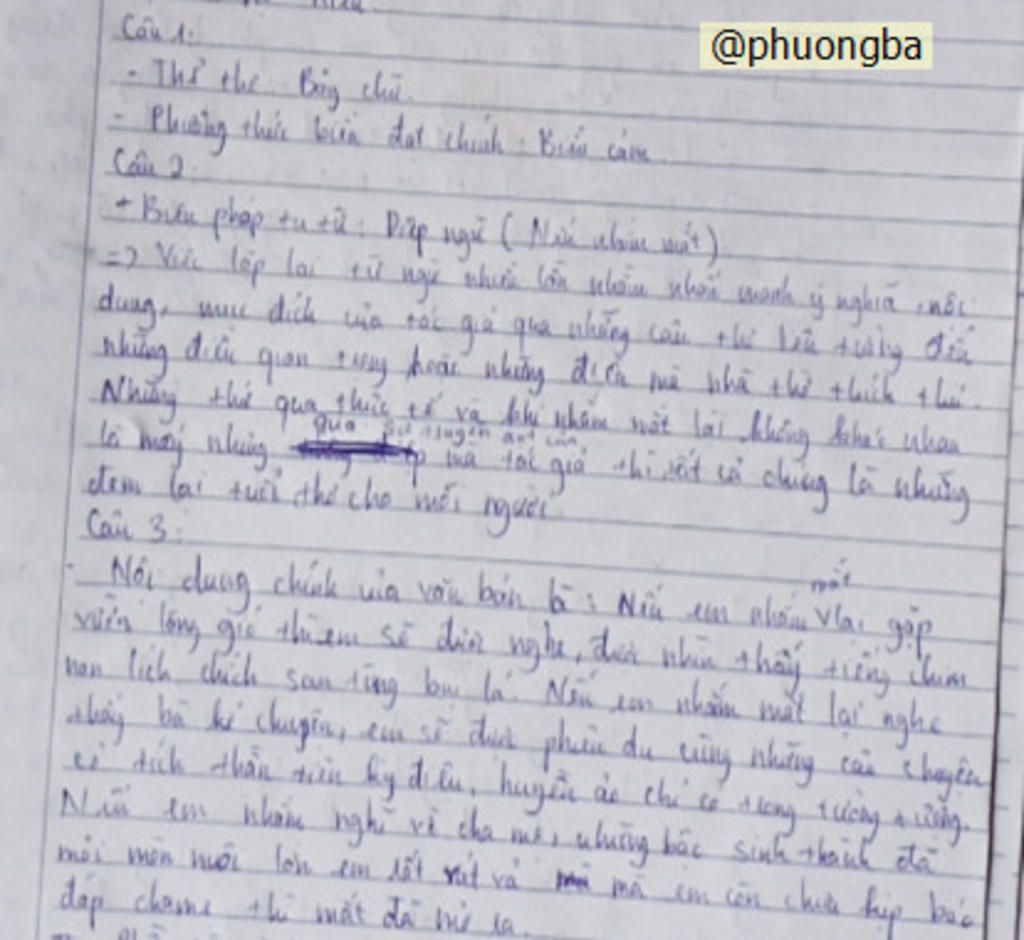 Câu 1:
@phuongba
- Thể thơ Bảy chữ.
- Phương thức biểu đạt chính: Biểu cảm.
Câu 2:
+ Biện pháp tu từ: Điệp ngữ (Nếu nhắm mắt).
=> Việc lặp lại từ ngữ nhiều lần nhằm nhấn mạnh ý nghĩa, nội
dung, mục đích của tác giả qua những câu thơ liên tưởng đến
những điều quan trọng hoặc những điều mà nhà thơ thích thú.
Những thứ qua thực tế và khi nhắm mắt lại không khác nhau
là mấy nhưng qua mà tác giả thì tất cả chúng là những
đem lại tuổi thơ cho mỗi người.
Câu 3:
- Nội dung chính của văn bản là: Nếu em nhắm mắt lại gặp
vườn lộng gió thì em sẽ được nghe, được nhìn thấy tiếng chim
non lích chích sau từng bụi lá. Nếu em nhắm mắt lại nghe
thấy bà kể chuyện, em sẽ được phiêu du cùng những câu chuyện
cổ tích thần tiên kỳ diệu, huyền ảo chỉ có trong tưởng tượng.
Nếu em nhắm nghĩ về cha mẹ, những bậc sinh thành đã
mỏi mòn nuôi lớn em rất vất vả mà em còn chưa kịp báo
đáp cha mẹ thì mắt đã mở ra.